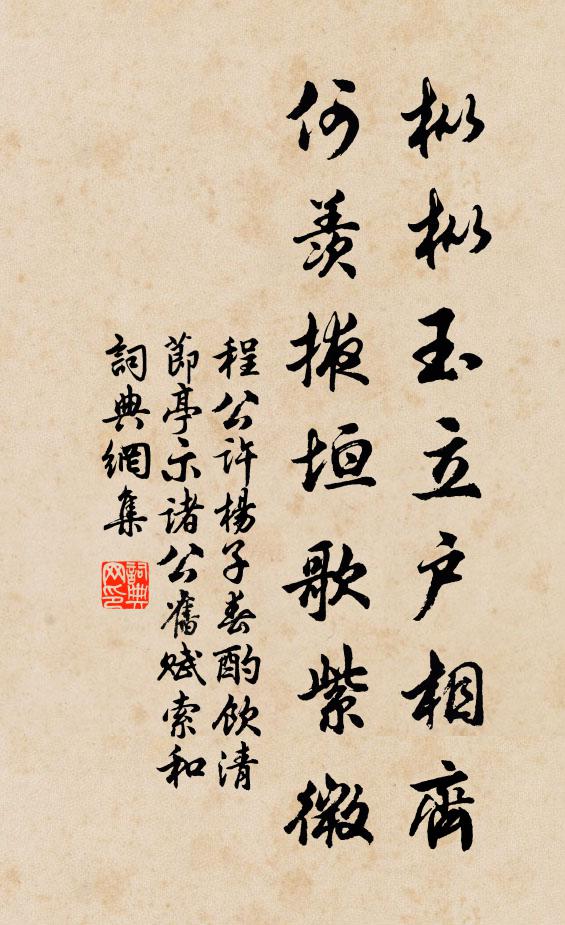 枞枞玉立户相齊
何羨掖垣歌紫微
程公許楊子春酌飲清
節亭示諸公舊賦索和
詞典網集
詞典网印